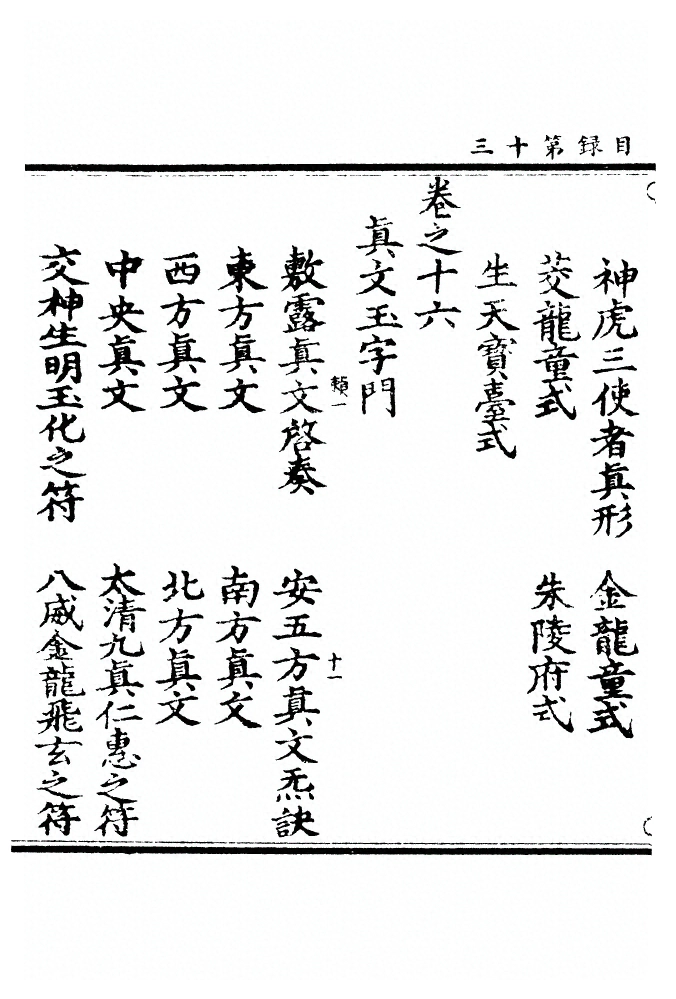 目録第十三
神虎三使者眞形 金龍童式
茭龍童式 朱陵府式
生天寳臺式
卷之十六
眞文玉字門
頼一 十一
敷露眞文啓奏 安五方眞文炁訣
東方眞文 南方眞文
西方眞文 北方眞文
中央眞文 太清九眞仁惠之符
交神生明玉化之符 八威金龍飛玄之符